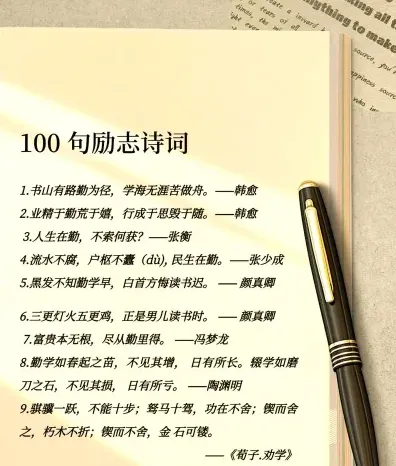 100 句励志诗词
1.书山有路勤为径，学海无涯苦做舟。——韩愈
2.业精于勤荒于嬉，行成于思毁于随。——韩愈
3.人生在勤，不索何获？——张衡
4.流水不腐，户枢不蠹（dù),民生在勤。——张少成
5.黑发不知勤学早，白首方悔读书迟。—— 颜真卿
6.三更灯火五更鸡，正是男儿读书时。—— 颜真卿
7.富贵本无根，尽从勤里得。——冯梦龙
8.勤学如春起之苗，不见其增， 日有所长。辍学如磨
刀之石，不见其损，日有所亏。——陶渊明
9.骐骥一跃，不能十步；驽马十驾，功在不舍；锲而舍
之，朽木不折；锲而不舍，金 石可镂。
——《荀子.劝学》